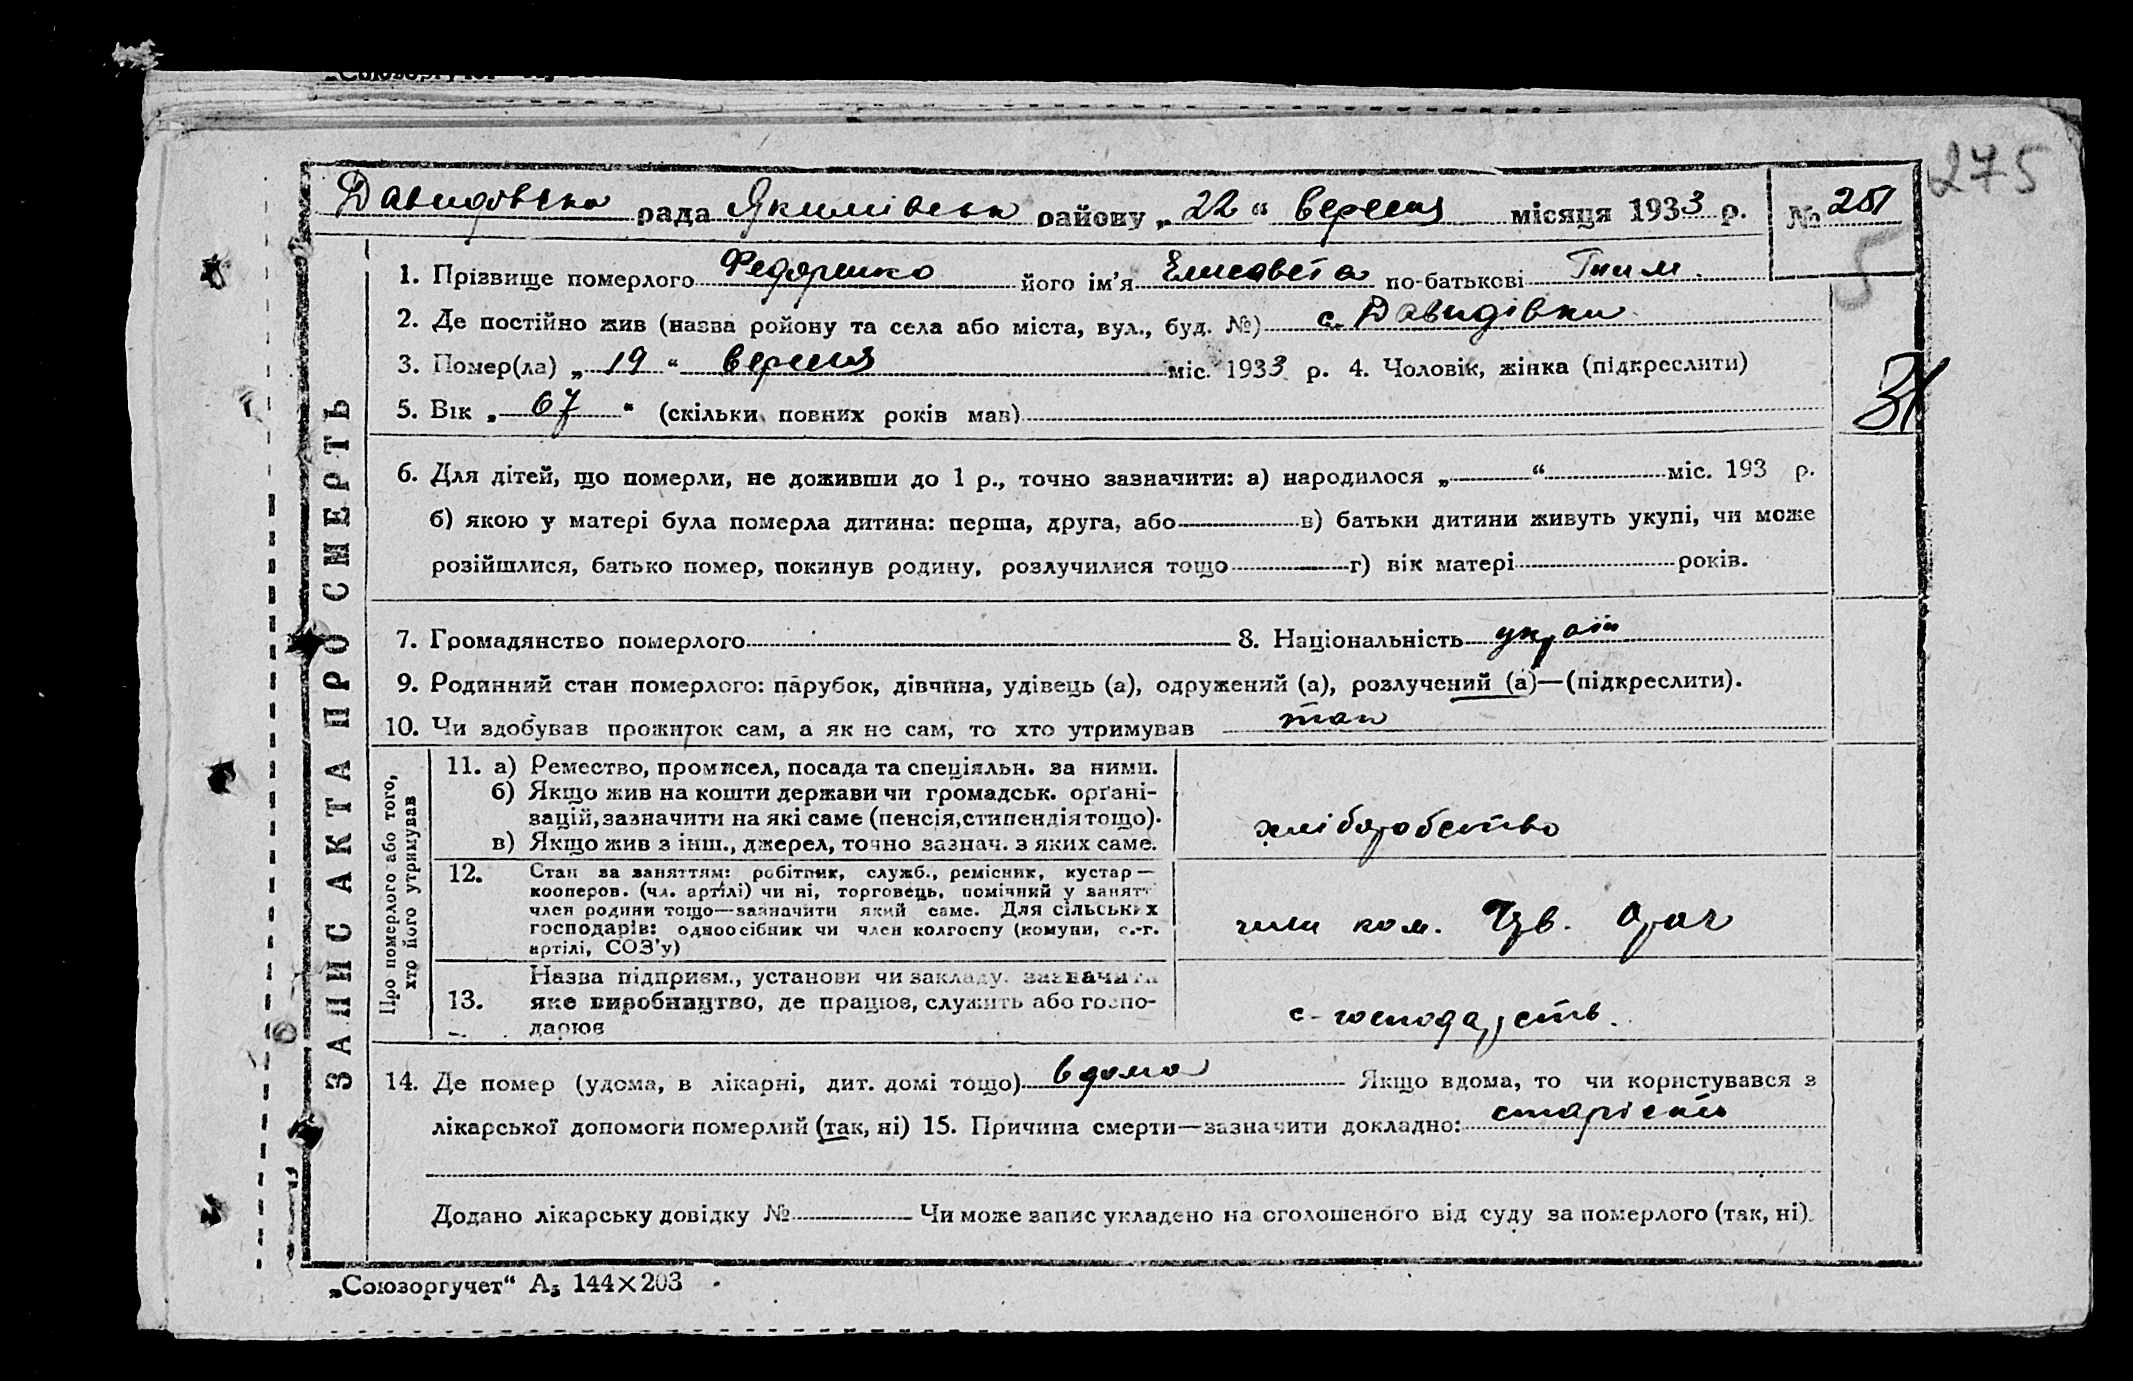 275
Давидовська рада Якимівськ району „22“ вересня місяця 1933 р. № 251
5
1. Прізвище померлого Федоренко його ім'я Елисавета по-батькові
2. Де постійно жив (назва ройону та села або міста, вул., буд. №) с. Давидівки
3. Помер(ла) „19“ вересня міс. 1933 р. 4. Чоловік, жінка (підкреслити)
31
5. Вік „67“ (скільки повних років мав)
6. Для дітей, що померли, не доживши до 1 р., точно зазначити: а) народилося „ “ міс. 193 р.
б) якою у матері була померла дитина: перша, друга, або в) батьки дитини живуть укупі, чи може
розійшлися, батько помер, покинув родину, розлучилися тощо г) вік матері років.
7. Громадянство померлого 8. Національність україн
9. Родинний стан померлого: парубок, дівчина, удівець (а), одружений (а), розлучений (а)—(підкреслити).
10. Чи здобував прожиток сам, а як не сам, то хто утримував так
ЗАПИС АКТА ПРО СМЕРТЬ
Про померлого або того,
хто його утримував
11. а) Ремество, промисел, посада та спеціяльн. за ними.
б) Якщо жив на кошти держави чи громадськ. орґані-
зацій, зазначити на які саме (пенсія, стипендія тощо).
в) Якщо жив з інш., джерел, точно зазнач. з яких саме.
хліборобство
12. Стан за заняттям: робітник, служб., ремісник, кустар—
кооперов. (чл. артілі) чи ні, торговець, помічний у занятт
член родини тощо—зазначити який саме. Для сільських
господарів: одноосібник чи член колгоспу (комуни, с.-г.
артілі, СОЗ'у)
член ком. Чзв. Орач
13. Назва підприєм., установи чи закладу. зазначити
яке виробництво, де працює, служить або госпо-
дарює
с-господарств.
14. Де помер (удома, в лікарні, дит. домі тощо) вдома Якщо вдома, то чи користувався з
лікарської допомоги померлий (так, ні) 15. Причина смерти—зазначити докладно: старість
Додано лікарську довідку № Чи може запис укладено на оголошеного від суду за померлого (так, ні).
„Союзоргучет“ А₅ 144×203